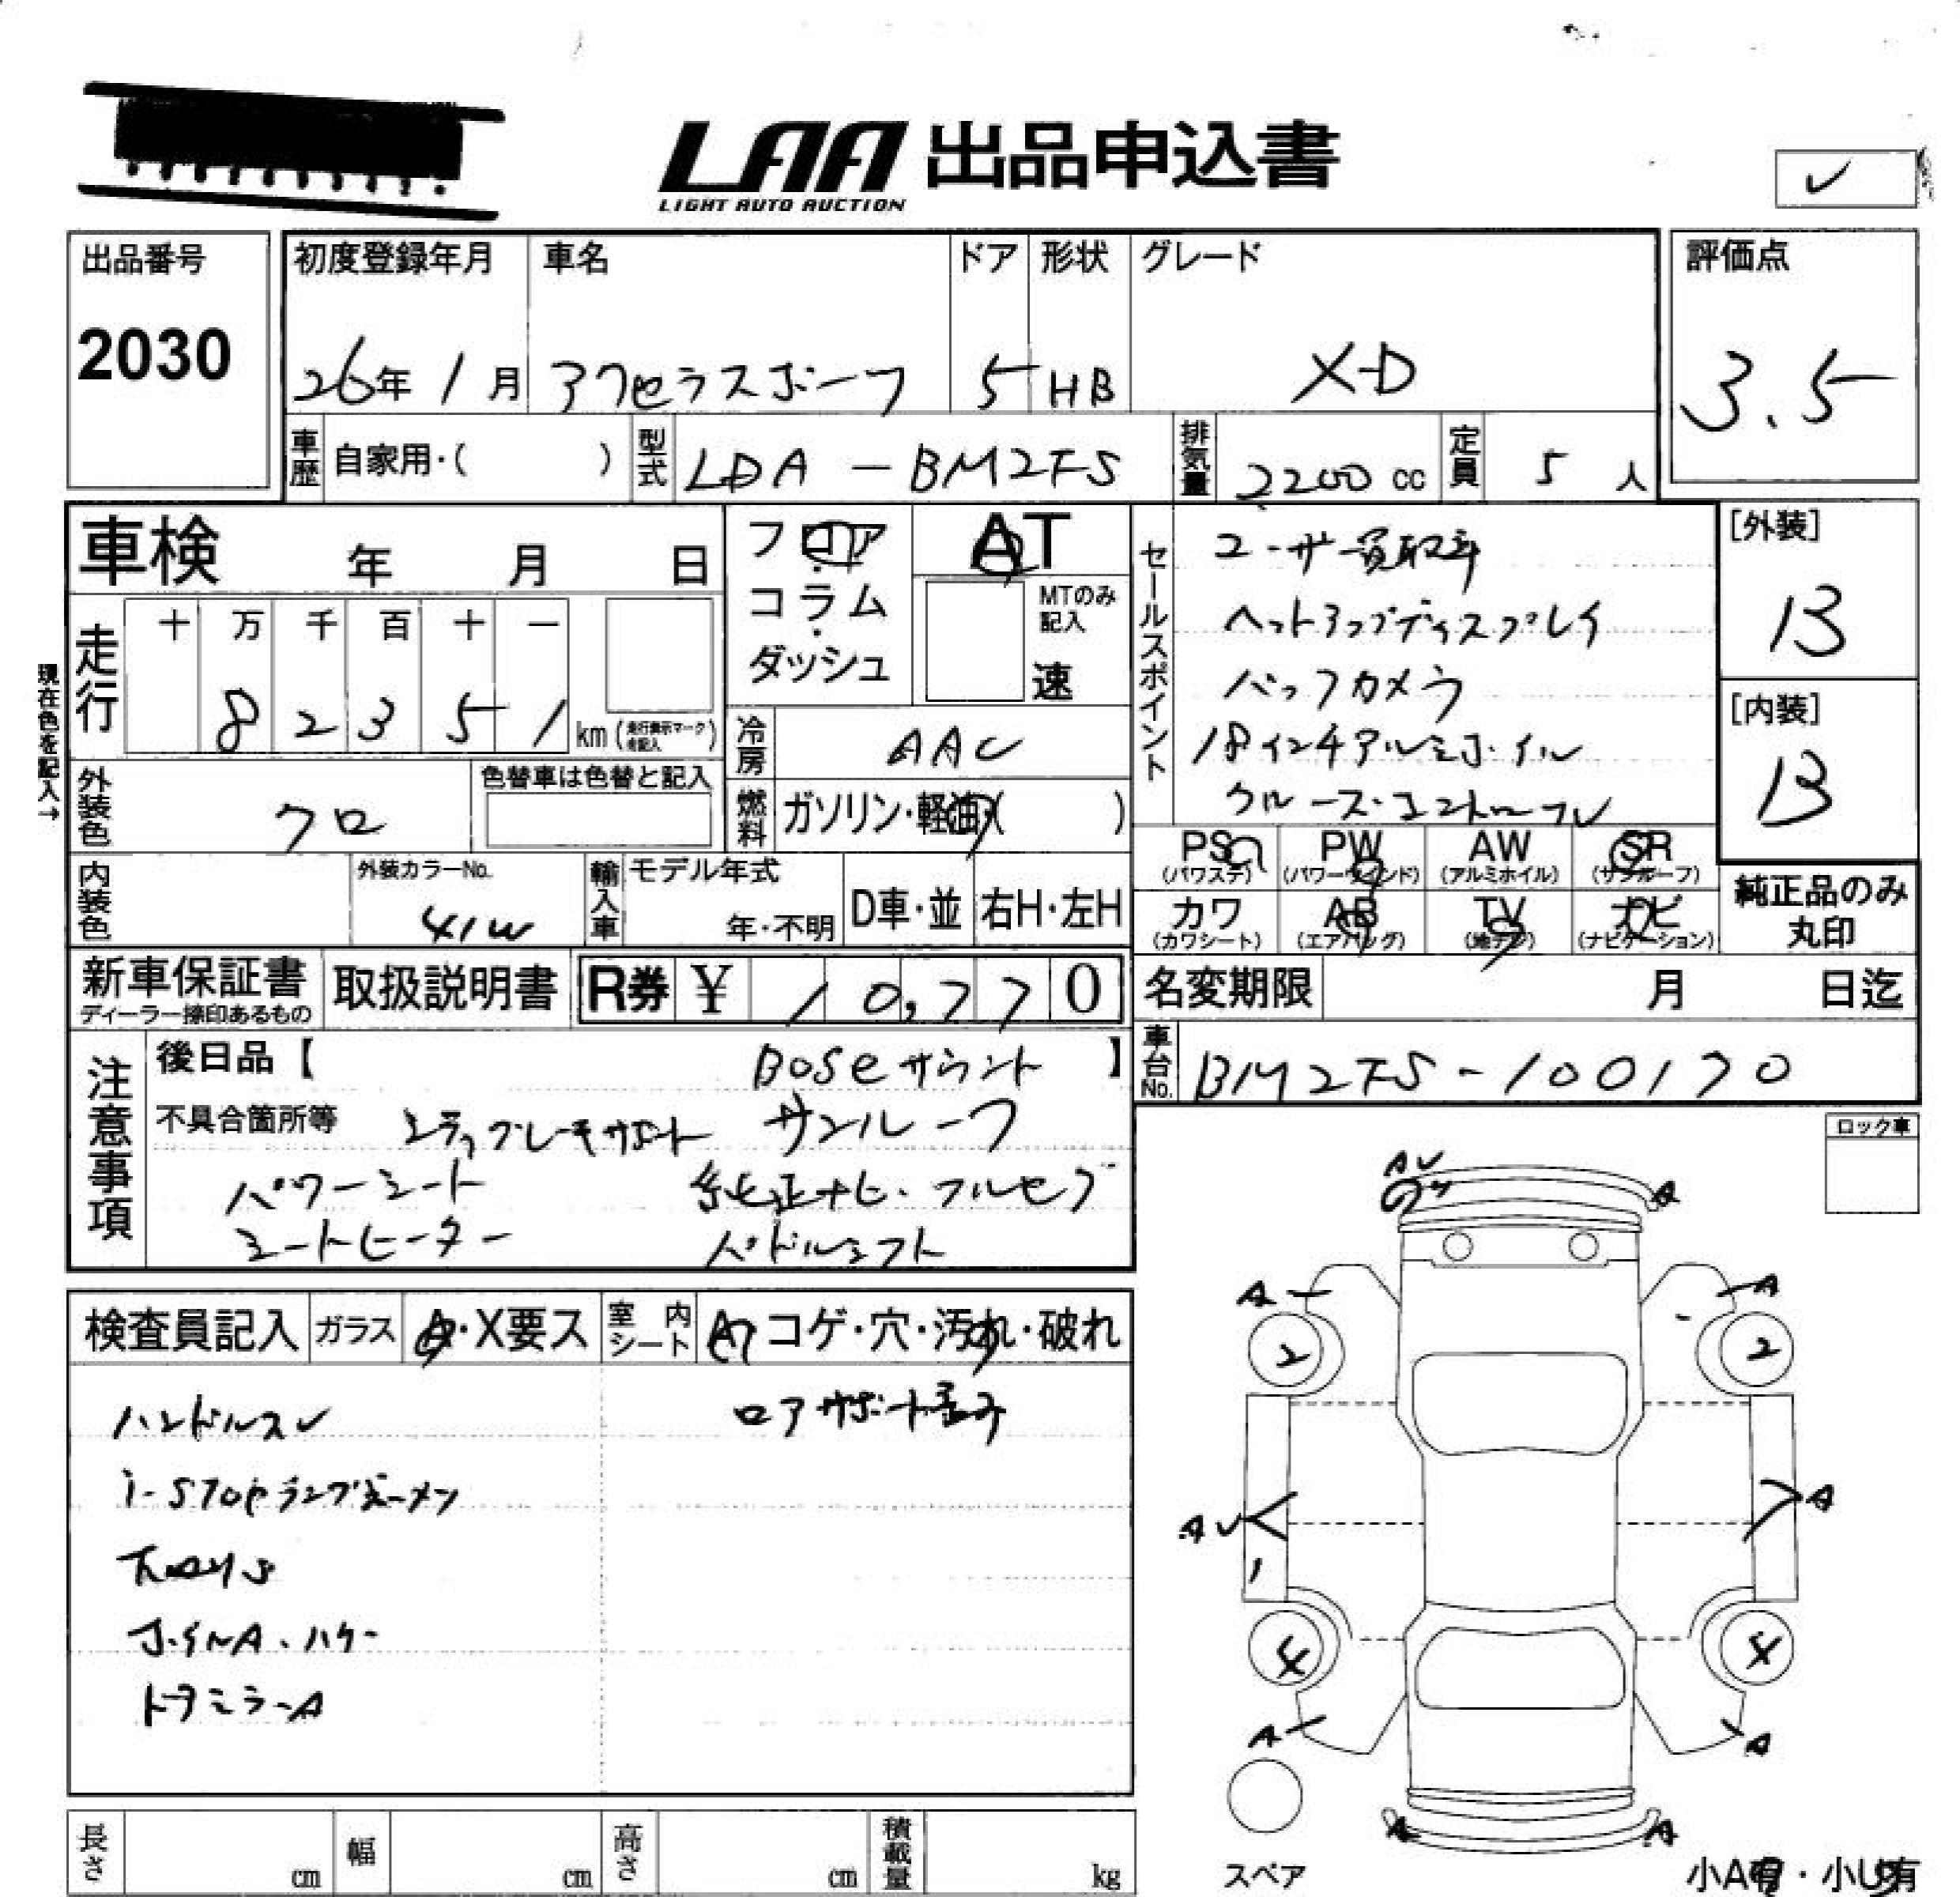 LAA 出品申込書
LIGHT AUTO AUCTION
出品番号 初度登録年月 車名 ドア 形状 グレード 評価点
2030 26年 1月 アクセラスポーツ 5 HB XD 3.5
車歴 自家用・( ) 型式 LDA-BM2FS 排気量 2200 cc 定員 5 人
車検 年 月 日
フロア・コラム・ダッシュ
AT
MTのみ記入
速
走行 十 万 千 百 十 一
8 2 3 5 1 km (走行表示マーク未記入)
現在色を記入→
冷房 AAC
外装色 クロ 色替車は色替と記入
燃料 ガソリン・軽油・( )
内装色 外装カラーNo. 41W
輸入車 モデル年式 年・不明 D車・並 右H・左H
セールスポイント
ユーザー買取車
ヘットアップディスプレイ
バックカメラ
18インチアルミホイル
クルーズ・コントロール
[外装]
B
[内装]
B
PS PW AW SR
(パワステ) (パワーウインド) (アルミホイル) (サンルーフ)
カワ AB TV ナビ
(カワシート) (エアバッグ) (地デジ) (ナビゲーション)
純正品のみ
丸印
新車保証書 取扱説明書 R券 ¥ 10,770
ディーラー捺印あるもの
名変期限 月 日迄
車台No. BM2FS-100170
注意事項
後日品【 BOSeサウント 】
不具合箇所等 シティブレーキサポート サンルーフ
パワーシート 純正ナビ・フルセグ
シートヒーター パドルシフト
ロック車
検査員記入 ガラス A・X要ス 室内シート A コゲ・穴・汚れ・破れ
ハンドルスレ
ロアサポート歪み
i-STOPランプ
下回りS
ホイルA・ハゲ
ドアミラーA
AU
A
A
A
2
2
AU
A
4
4
A
A
A
A
スペア
小A有・小U有
長さ cm 幅 cm 高さ cm 積載量 kg